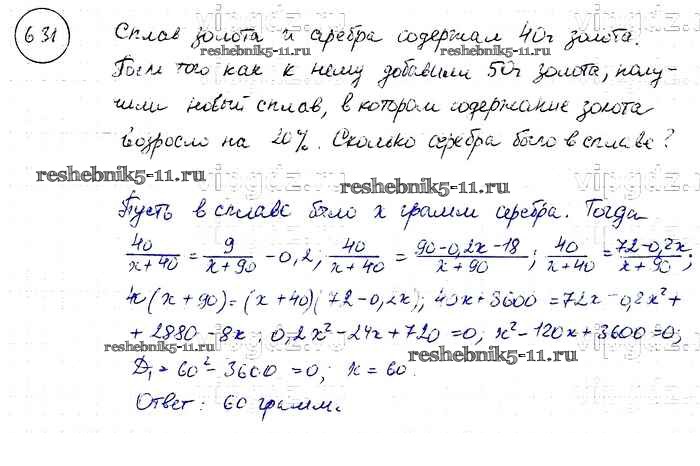 631
Сплав золота и серебра содержал 40г золота.
reshebnik5-11.ru
reshebnik5-11.ru
После того как к нему добавили 50г золота, полу-
чили новый сплав, в котором содержание золота
возросло на 20%. Сколько серебра было в сплаве?
reshebnik5-11.ru
reshebnik5-11.ru
Пусть в сплаве было x грамм серебра. Тогда
40/(x+40) = 9/(x+90) - 0,2; 40/(x+40) = (90-0,2x-18)/(x+90); 40/(x+40) = (72-0,2x)/(x+90);
(x+90) = (x+40)(72-0,2x); 40x+3600 = 72x-0,2x²+
+2880-8x; 0,2x²-24x+720=0; x²-120x+3600=0;
reshebnik5-11.ru
reshebnik5-11.ru
D₁ = 60²-3600 = 0; x = 60.
Ответ: 60 грамм.